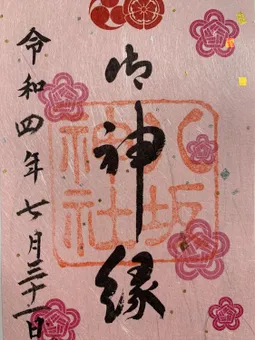 八坂
神社
御神縁
令和四年七月三十一日